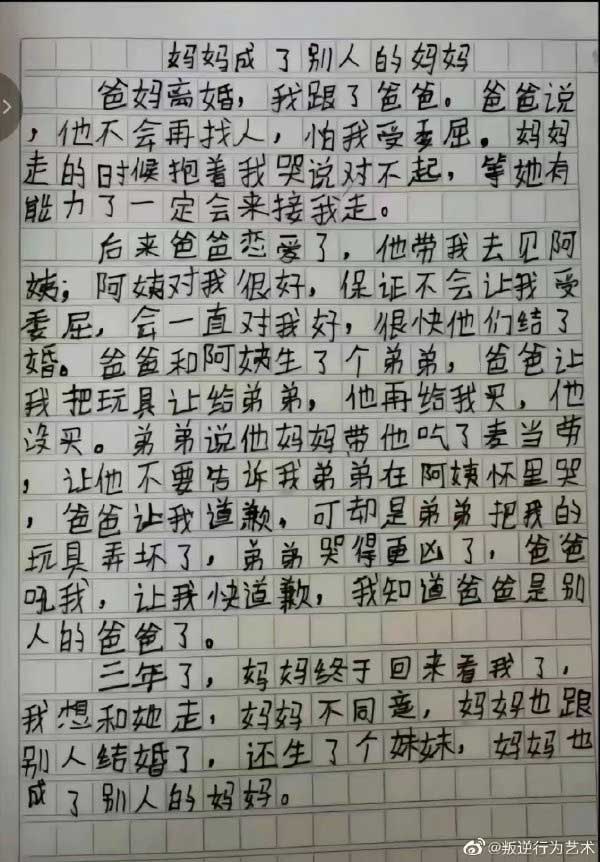 妈妈成了别人的妈妈
爸妈离婚，我跟了爸爸。爸爸说
，他不会再找人，怕我受委屈。妈妈
走的时候抱着我哭说对不起，等她有
能力了一定会来接我走。
后来爸爸恋爱了，他带我去见阿
姨；阿姨对我很好，保证不会让我受
委屈，会一直对我好，很快他们结了
婚。爸爸和阿姨生了个弟弟，爸爸让
我把玩具让给弟弟，他再给我买，他
没买。弟弟说他妈妈带他吃了麦当劳
，让他不要告诉我弟弟在阿姨怀里哭
，爸爸让我道歉，可却是弟弟把我的
玩具弄坏了，弟弟哭得更凶了，爸爸
吼我，让我快道歉，我知道爸爸是别
人的爸爸了。
三年了，妈妈终于回来看我了，
我想和她走，妈妈不同意，妈妈也跟
别人结婚了，还生了个妹妹，妈妈也
成了别人的妈妈。
@叛逆行为艺术